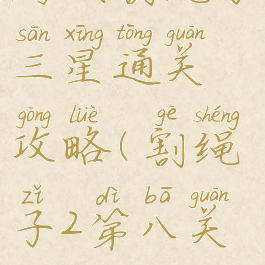 sān xīng tōng guān
三星通关
gōng lüè gē shéng
攻略(割绳
zǐ dì bā guān
子2第八关